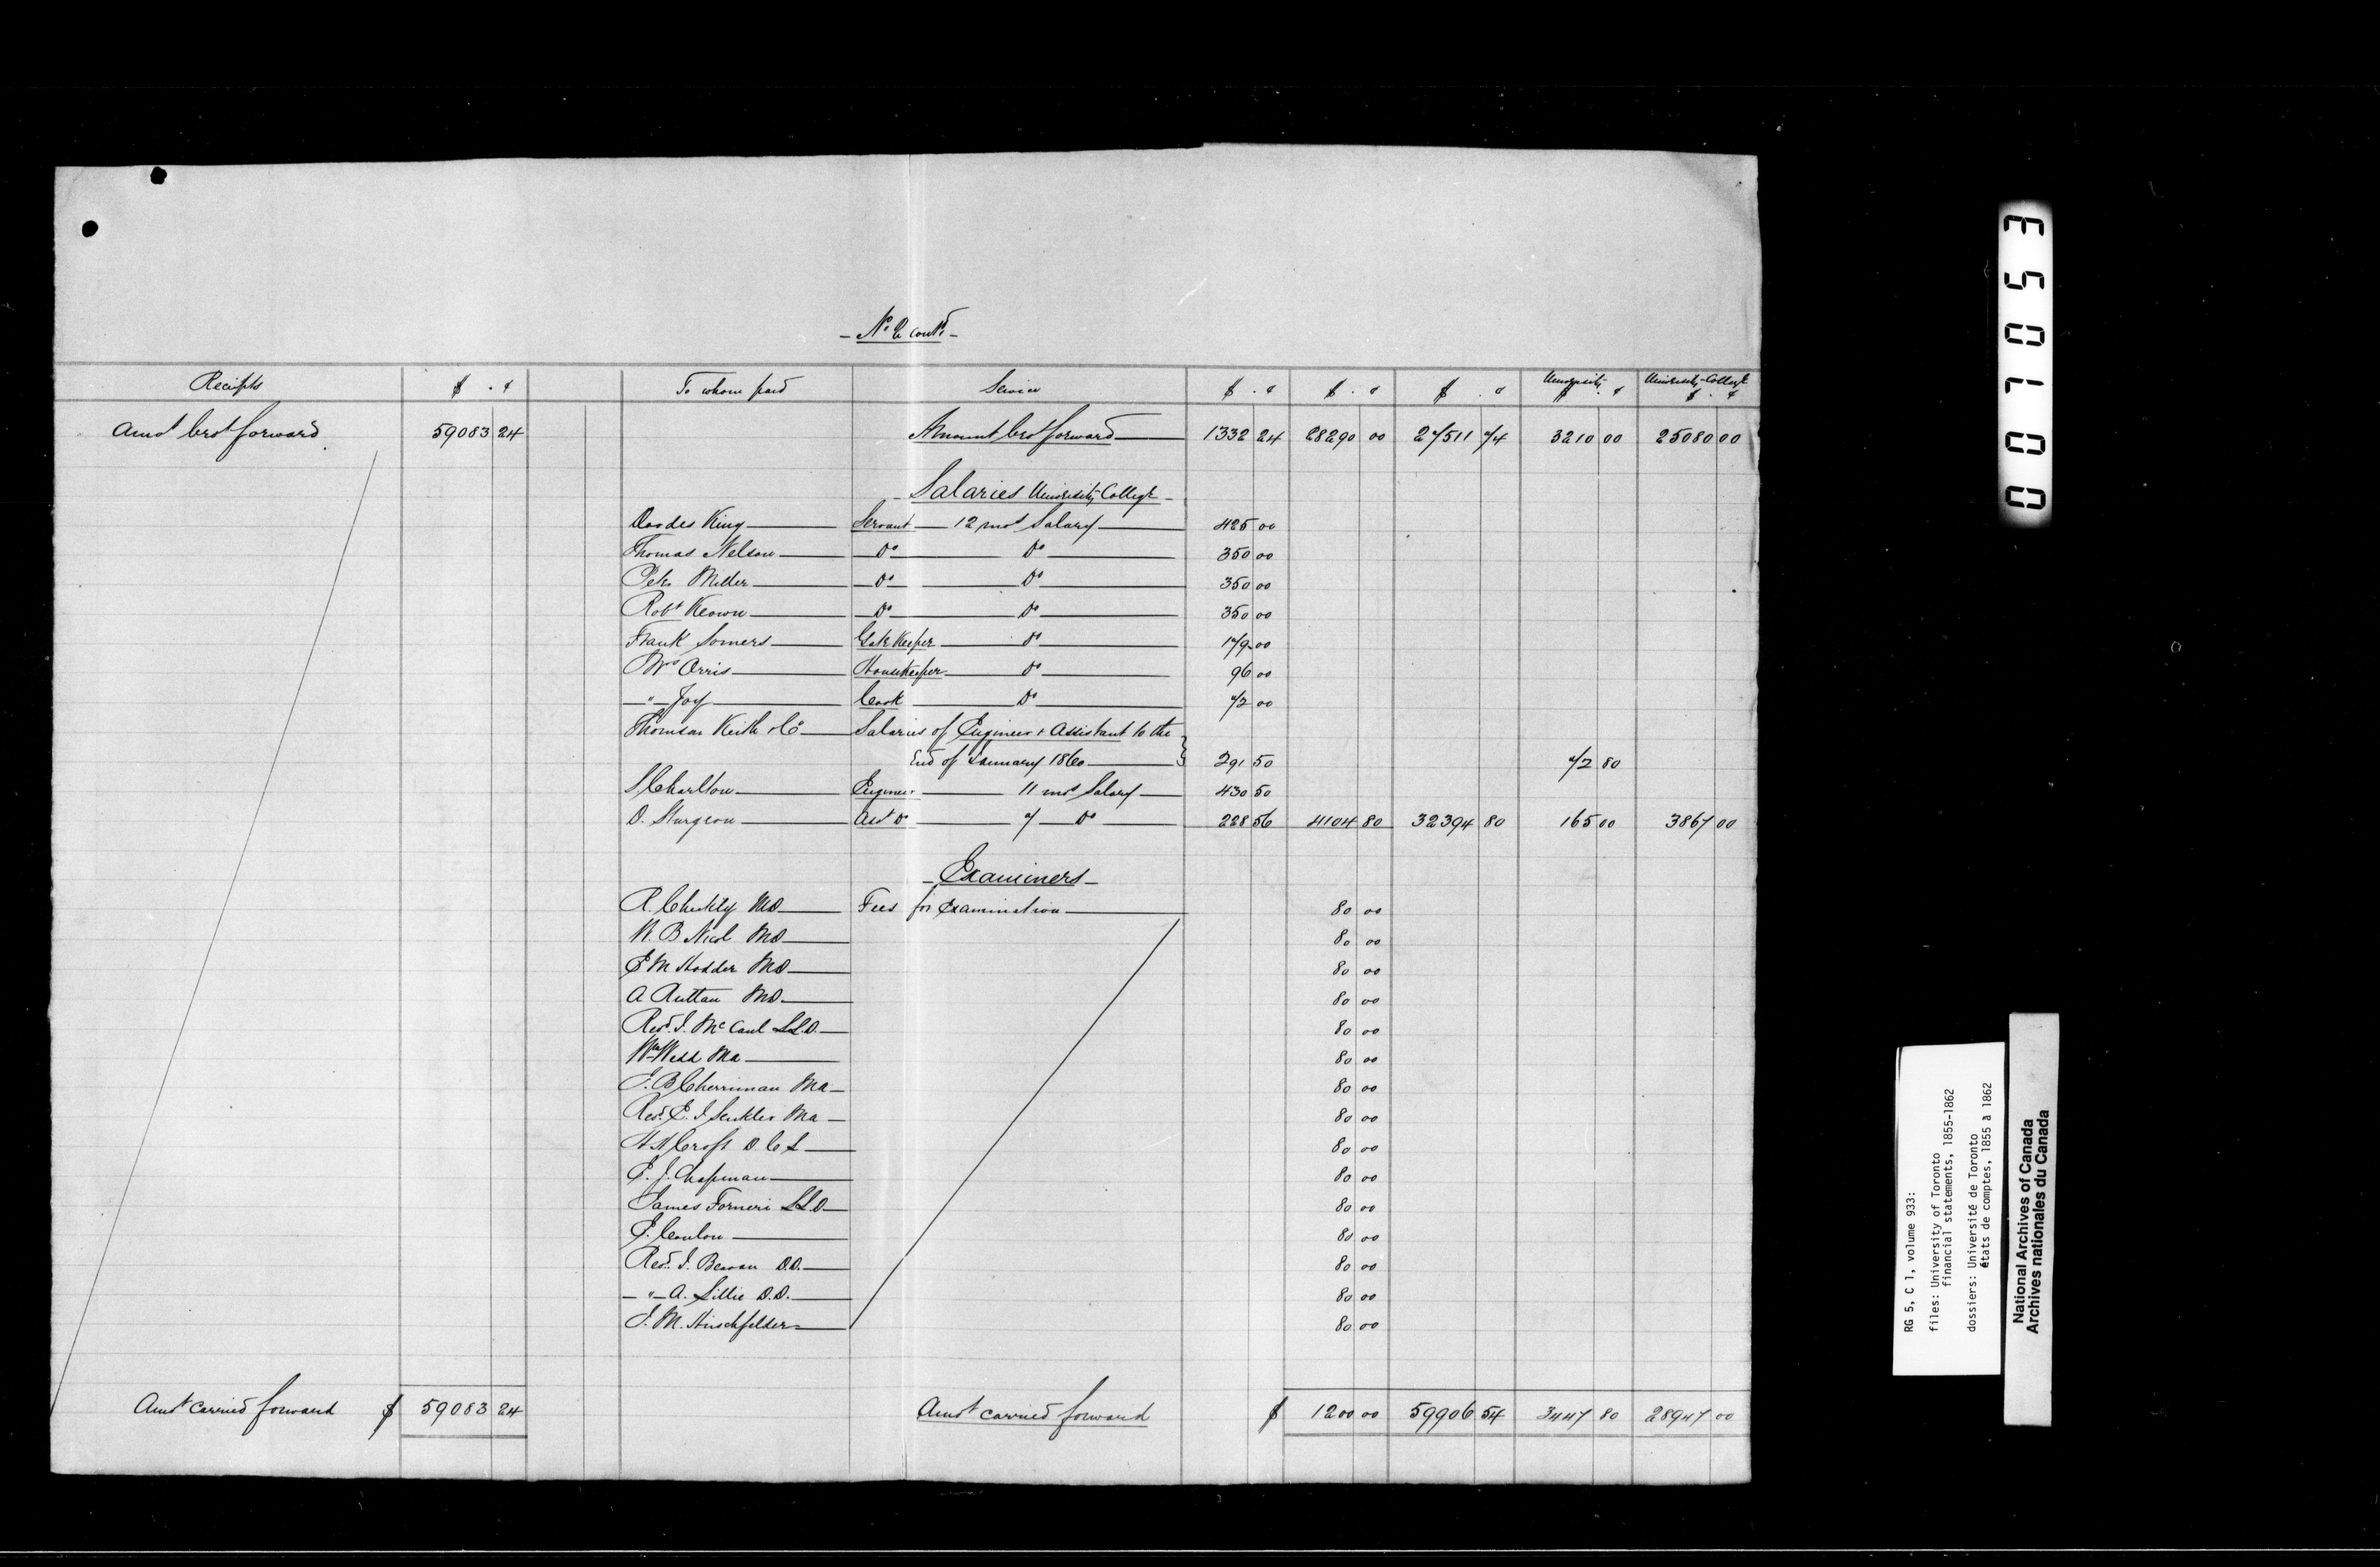 - No. 6 contd. -
Receipts $ . ¢ To whom paid Service $ . ¢ $ . ¢ $ . ¢ University $ . ¢ University College $ . ¢
Amot brot forward 59083 24 Amount brot forward 1332 24 28290 00 27511 74 3210 00 25080 00
- Salaries University College -
King Servant 12 mos Salary 425 00
Thomas Nelson Do Do 350 00
Peter Miller Do Do 350 00
Robt Keown Do Do 350 00
Frank Somers Gate Keeper Do 179 00
Mrs Orris Housekeeper Do 96 00
" Joy Cook Do 72 00
Thomson Keith & Co Salaries of Engineer & Assistant to the
End of January 1860 291 50 72 80
S Charlton Engineer 11 mos Salary 430 50
D. Sturgeon Asst Do 7 Do 228 56 4104 80 32394 80 165 00 3867 00
- Examiners -
Fees for Examination 80 00
W. B Nicol MD 80 00
E M Hodder MD 80 00
A Ruttan MD 80 00
Revd. J. McCaul LL.D. 80 00
Wm Wedd MA 80 00
J. B Cherriman MA 80 00
Revd. E. J Senkler MA 80 00
H H Croft D. C L 80 00
E. J. Chapman 80 00
James Forneri LLD 80 00
E. Coulon 80 00
Revd. J. Beavan D.D. 80 00
" A. Lillie D.D. 80 00
J. M. Hirschfelder 80 00
Amot carried forward $ 59083 24 Amot carried forward $ 1200 00 59906 54 3447 80 28947 00
001053
RG 5, C 1, volume 933:
files: University of Toronto
financial statements, 1855-1862
dossiers: Université de Toronto
états de comptes, 1855 à 1862
National Archives of Canada
Archives nationales du Canada